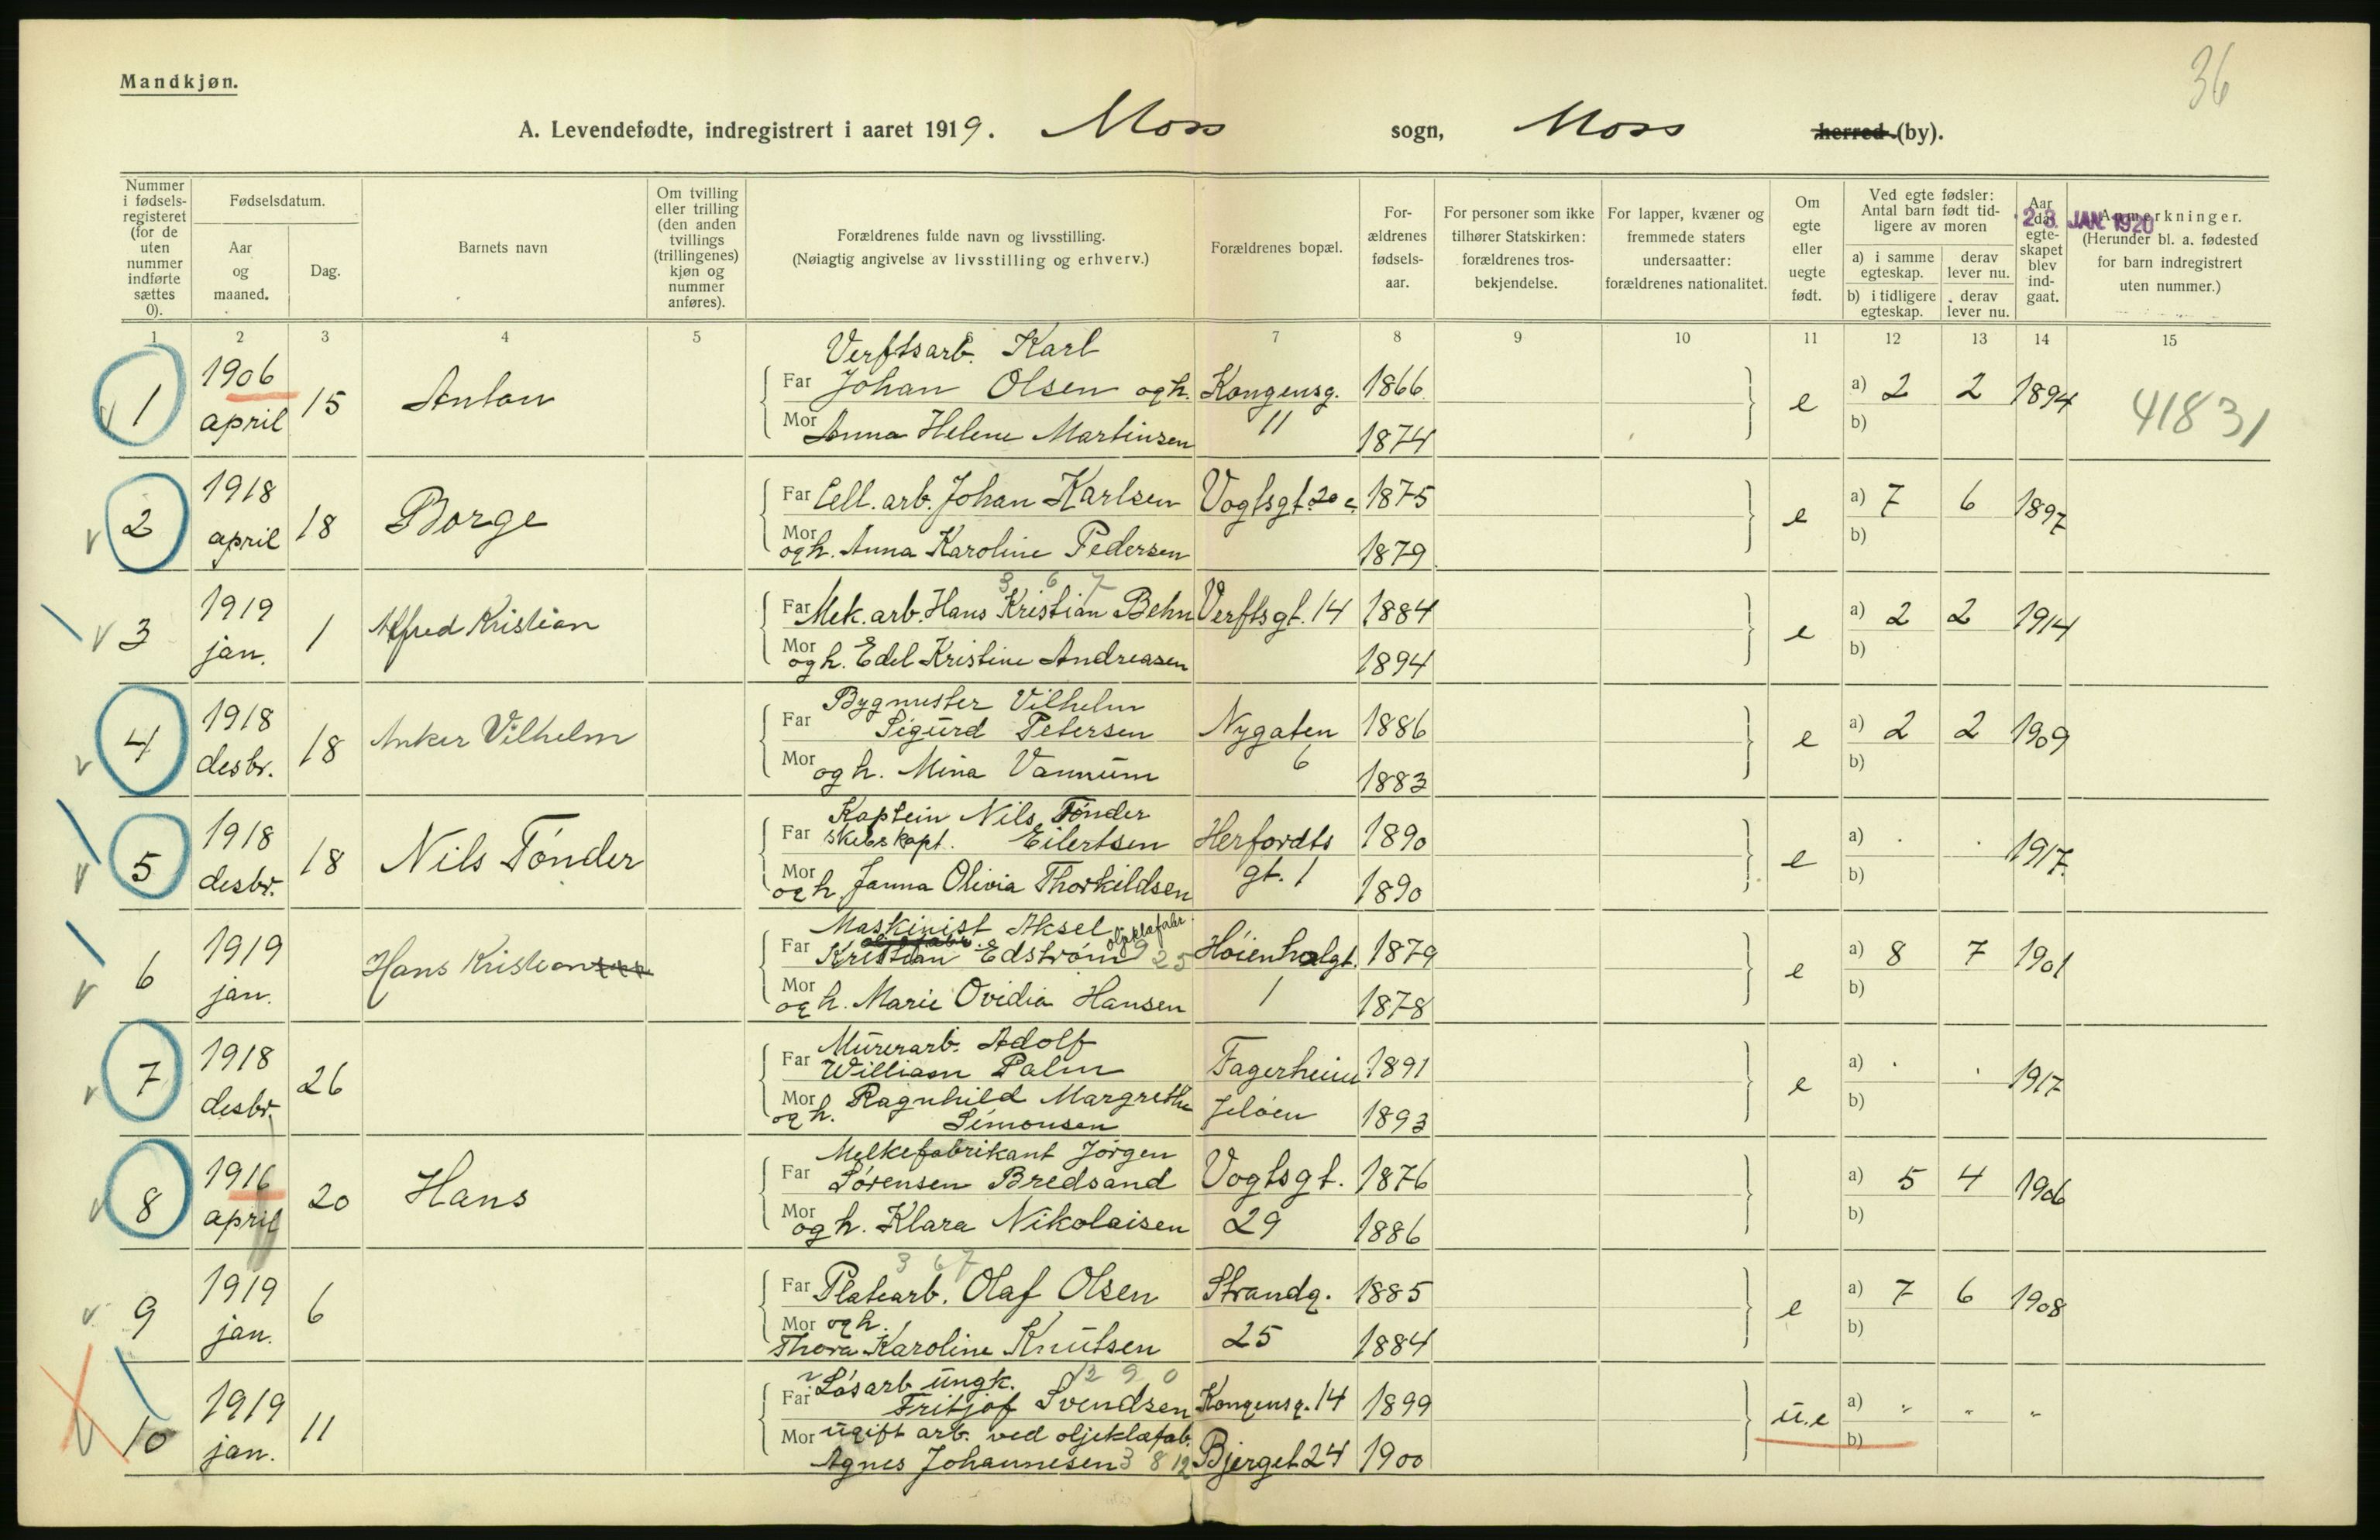 36
Mandkjøn.
A. Levendefødte, indregistrert i aaret 1919. Moss sogn, Moss herred (by).
Nummer i fødsels-registeret (for de uten nummer indførte sættes 0).
Fødselsdatum.
Aar og maaned.
Dag.
Barnets navn
Om tvilling eller trilling (den anden tvillings (trillingenes) kjøn og nummer anføres).
Forældrenes fulde navn og livsstilling.
(Nøiagtig angivelse av livsstilling og erhverv.)
Forældrenes bopæl.
For-ældrenes fødsels-aar.
For personer som ikke tilhører Statskirken: forældrenes tros-bekjendelse.
For lapper, kvæner og fremmede staters undersaatter: forældrenes nationalitet.
Om egte eller uegte født.
Ved egte fødsler: Antal barn født tid-ligere av moren
a) i samme egteskap.
derav lever nu.
b) i tidligere egteskap.
derav lever nu.
Aar da egte-skapet blev ind-gaat.
Anmerkninger.
(Herunder bl. a. fødested for barn indregistrert uten nummer.)
23 JAN 1920
1 2 3 4 5 6 7 8 9 10 11 12 13 14 15
Verftsarb. Karl
1 1906 april 15 Anton Far Johan Olsen og h. Kongensg. 1866 e a) 2 2 1894 41831
Mor Anna Helene Martinsen 11 1874 b)
2 1918 april 18 Borge Far Cell. arb. Johan Karlsen Vogtsgt. 20 c. 1875 e a) 7 6 1897
Mor og h. Anna Karoline Pedersen 1879 b)
3 6 7
3 1919 jan. 1 Alfred Kristian Far Mek. arb. Hans Kristian Behn Verftsgt. 14 1884 e a) 2 2 1914
Mor og h. Edel Kristine Andreasen 1894 b)
Bygmester Vilhelm
4 1918 desbr. 18 Anker Vilhelm Far Sigurd Petersen Nygaten 1886 e a) 2 2 1909
Mor og h. Mina Vannum 6 1883 b)
Kaptein Nils Tønder
5 1918 desbr. 18 Nils Tónder Far skibskapt. Eilertsen Herfordts 1890 e a) . . 1917
Mor og h. Janna Olivia Thorkildsen gt. 1 1890 b)
Maskinist Aksel oljeklæfabr.
6 1919 jan. Hans Kristian Far Kristian Edström 9 25 Hóienhalgt. 1879 e a) 8 7 1901
Mor og h. Marie Ovidia Hansen 1 1878 b)
Murerarb. Adolf
7 1918 desbr. 26 Far William Palm Fagerheim 1891 e a) . . 1917
Mor og h. Ragnhild Margrethe Jelóen 1893 b)
Simonsen
Melkefabrikant Jörgen
8 1916 april 20 Hans Far Sörensen Bredsand Vogtsgt. 1876 e a) 5 4 1906
Mor og h. Klara Nikolaisen 29 1886 b)
3 6 7
9 1919 jan. 6 Far Platearb. Olaf Olsen Strandg. 1885 e a) 7 6 1908
Mor og h. Thora Karoline Knutsen 25 1884 b)
Lósarb. ungk. 12 9 0
10 1919 jan. 11 Far Fritjof Svendsen Kongensg. 14 1899 u.e a) " " "
Mor ugift arb. ved oljeklæfab. b)
Agnes Johannesen 3 8 12 Bjerget 24 1900